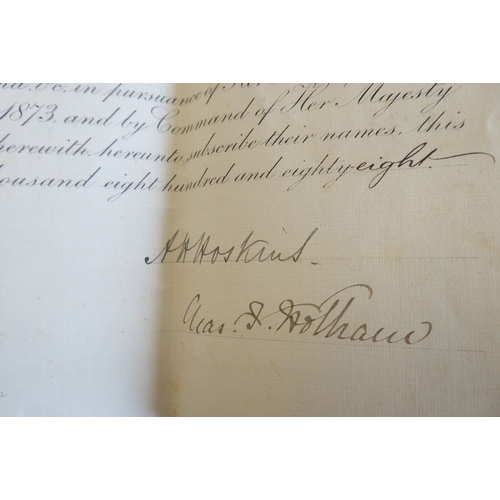 &c. in pursuance of
1873. and by Command of Her Majesty
herewith, hereunto, subscribe their names, this
thousand eight hundred and eighty-eight.
A H Hoskins.
Chas. F. Hotham